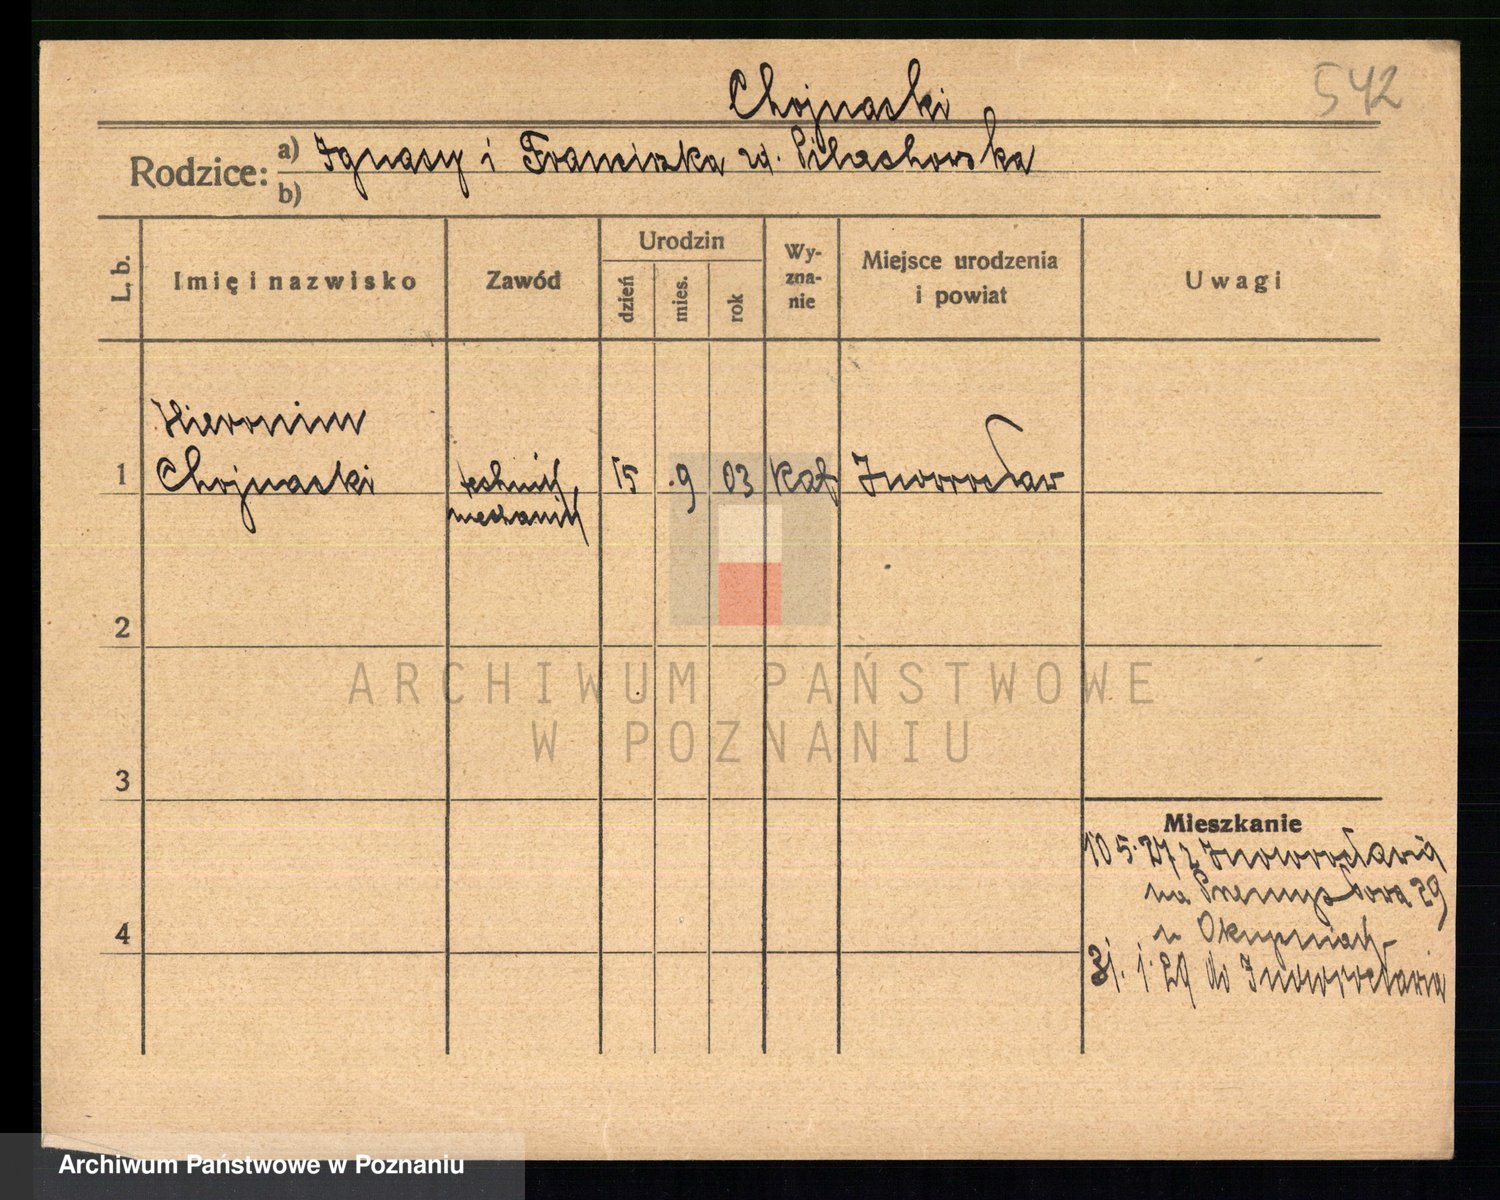 542
Chojnacki
Rodzice: a) Ignacy i Franciszka zd. Pilachowska
b)
L. b.
Imię i nazwisko
Zawód
Urodzin
dzień
mies.
rok
Wy-
zna-
nie
Miejsce urodzenia
i powiat
Uwagi
Hieronim
1 Chojnacki technik 15 .9 03 kat Inowrocław
mechanik
2
ARCHIWUM PAŃSTWOWE
W POZNANIU
3
Mieszkanie
10 5. 27 z Inowrocławia
na Przemysłowa 29
u
4
31. 1. 29 do Inowrocławia
Archiwum Państwowe w Poznaniu